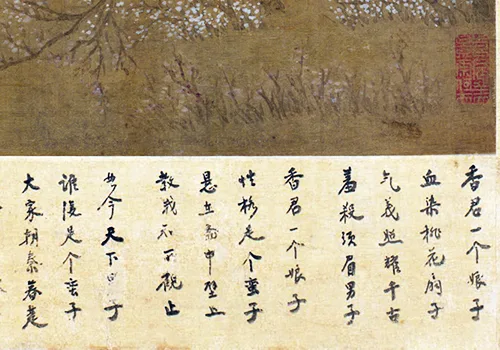 香君一个娘子
血染桃花扇子
气義照耀千古
羞殺須眉男子
香君一个娘子
性格是个蛮子
悬在斋中壁上
教我知所觀止
如今天下男子
誰復是个蛮子
大家朝秦暮楚